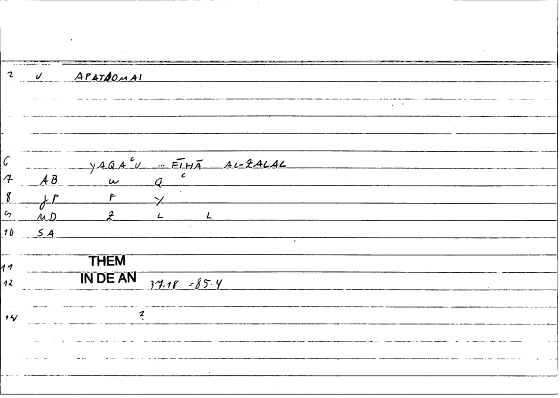 2 V APATAOMAI
6 YAQAʿU ... FĪHĀ AL-ZALAL
7 AB W Q ʿ
8 JP F Y
9 MD Z L L
10 SA
11 THEM
12 IN DE AN 37.18 = 85.4
14 ?